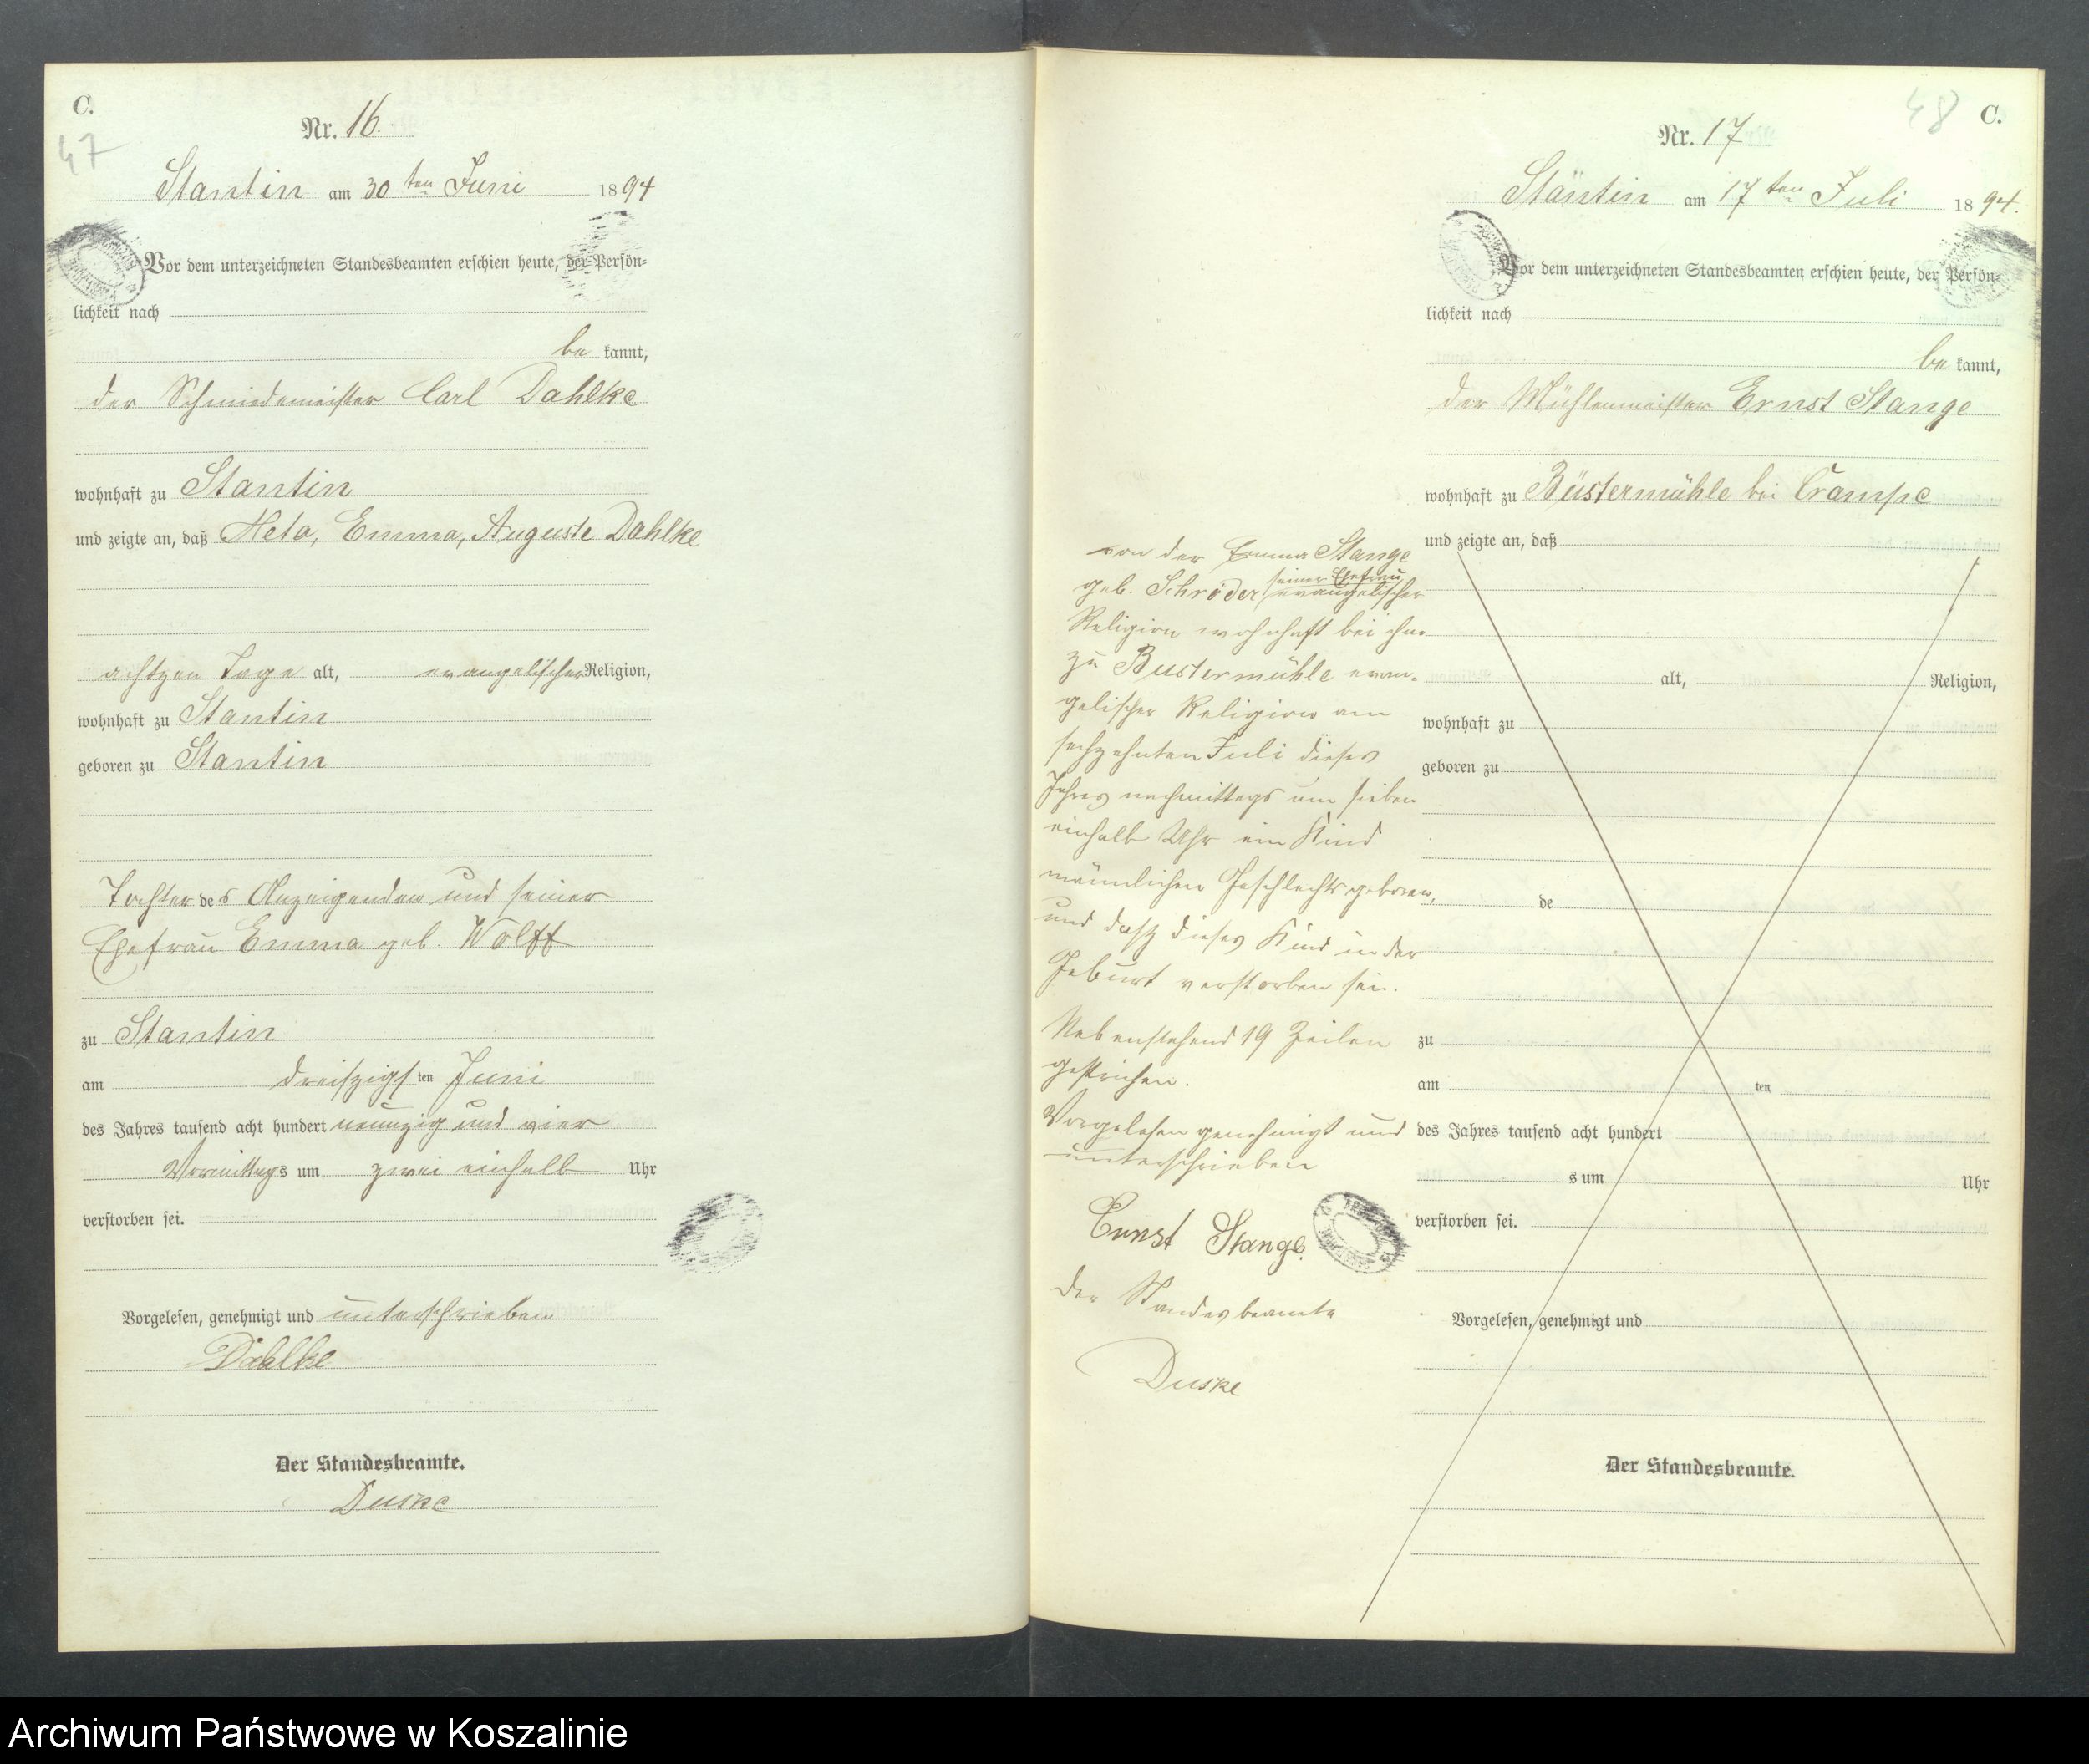 C.
47
Nr. 16.
Stantin am 30ten Juni 1894
Vor dem unterzeichneten Standesbeamten erschien heute, der Persön-
lichkeit nach
be kannt,
der Schmiedemeister Carl Dahlke
wohnhaft zu Stantin
und zeigte an, daß Meta, Emma, Auguste Dahlke
achtzen Tage alt, evangelischer Religion,
wohnhaft zu Stantin
geboren zu Stantin
Tochter des Anzeigenden und seiner
Ehefrau Emma geb. Wolff
zu Stantin
am dreiszigsten Juni
des Jahres tausend acht hundert neunzig und vier
Vormittags um zwei einhalb Uhr
verstorben sei.
Vorgelesen, genehmigt und unterschrieben
Dahlke
Der Standesbeamte.
Duske
48 C.
Nr. 17
Stantin am 17ten Juli 1894.
Vor dem unterzeichneten Standesbeamten erschien heute, der Persön-
lichkeit nach
be kannt,
der Mühlenmeister Ernst Stange
wohnhaft zu Büstermühle bei Crampe
und zeigte an, daß
von der Emma Stange
geb. Schröder seiner Ehefrau evangelischer
Religion wohnhaft bei ihm
zu Bustermühle evan-
gelischer Religion am
sechzehnten Juli dieses
Jahres nachmittags um sieben
einhalb Uhr ein Kind
männlichen Geschlechts geboren,
und dasz dieses Kind in der
Geburt verstorben sei.
Nebenstehend 19 Zeilen
gestrichen.
Vorgelesen genehmigt und
unterschrieben
Ernst Stange.
Der Standesbeamte
Duske
alt, Religion,
wohnhaft zu
geboren zu
de
zu
am ten
des Jahres tausend acht hundert
s um Uhr
verstorben sei.
Vorgelesen, genehmigt und
Der Standesbeamte.
Archiwum Państwowe w Koszalinie